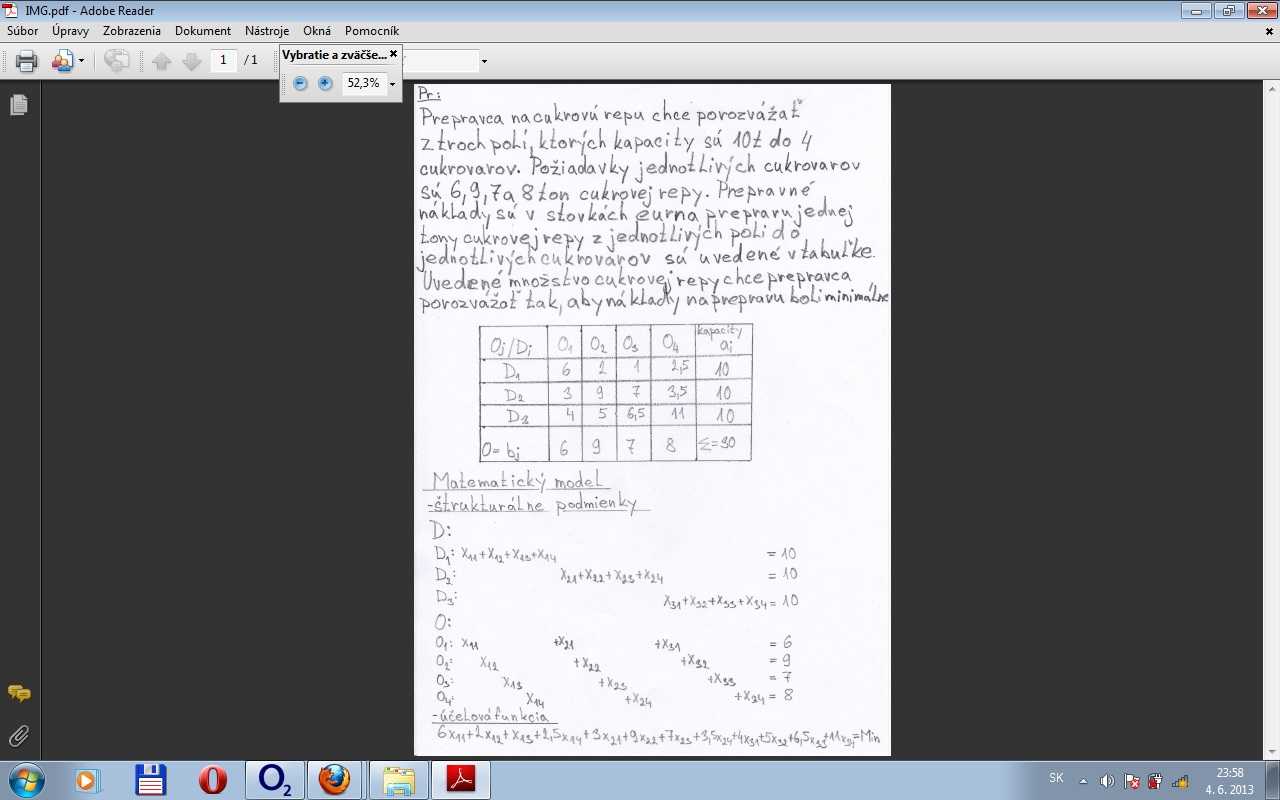 IMG.pdf - Adobe Reader
Súbor Úpravy Zobrazenia Dokument Nástroje Okná Pomocník
1 / 1
Vybratie a zväčše...
52,3%
Pr:
Prepravca na cukrovú repu chce porozvážať
z troch polí, ktorých kapacity sú 10t do 4
cukrovarov. Požiadavky jednotlivých cukrovarov
sú 6, 9, 7 a 8 ton cukrovej repy. Prepravné
náklady sú v stovkách eur na prepravu jednej
tony cukrovej repy z jednotlivých polí do
jednotlivých cukrovarov sú uvedené v tabuľke.
Uvedené množstvo cukrovej repy chce prepravca
porozvážať tak, aby náklady na prepravu boli minimálne
Oj/Di O1 O2 O3 O4 kapacity ai
D1 6 2 1 2,5 10
D2 3 9 7 3,5 10
D3 4 5 6,5 11 10
O= bj 6 9 7 8 Σ=30
Matematický model
-štrukturálne podmienky
D:
D1: x11+x12+x13+x14 = 10
D2: x21+x22+x23+x24 = 10
D3: x31+x32+x33+x34 = 10
O:
O1: x11 +x21 +x31 = 6
O2: x12 +x22 +x32 = 9
O3: x13 +x23 +x33 = 7
O4: x14 +x24 +x24 = 8
-účelová funkcia
6x11+2x12+x13+2,5x14+3x21+9x22+7x23+3,5x24+4x31+5x32+6,5x33+11x34=Min
O2
SK
23:58
4. 6. 2013